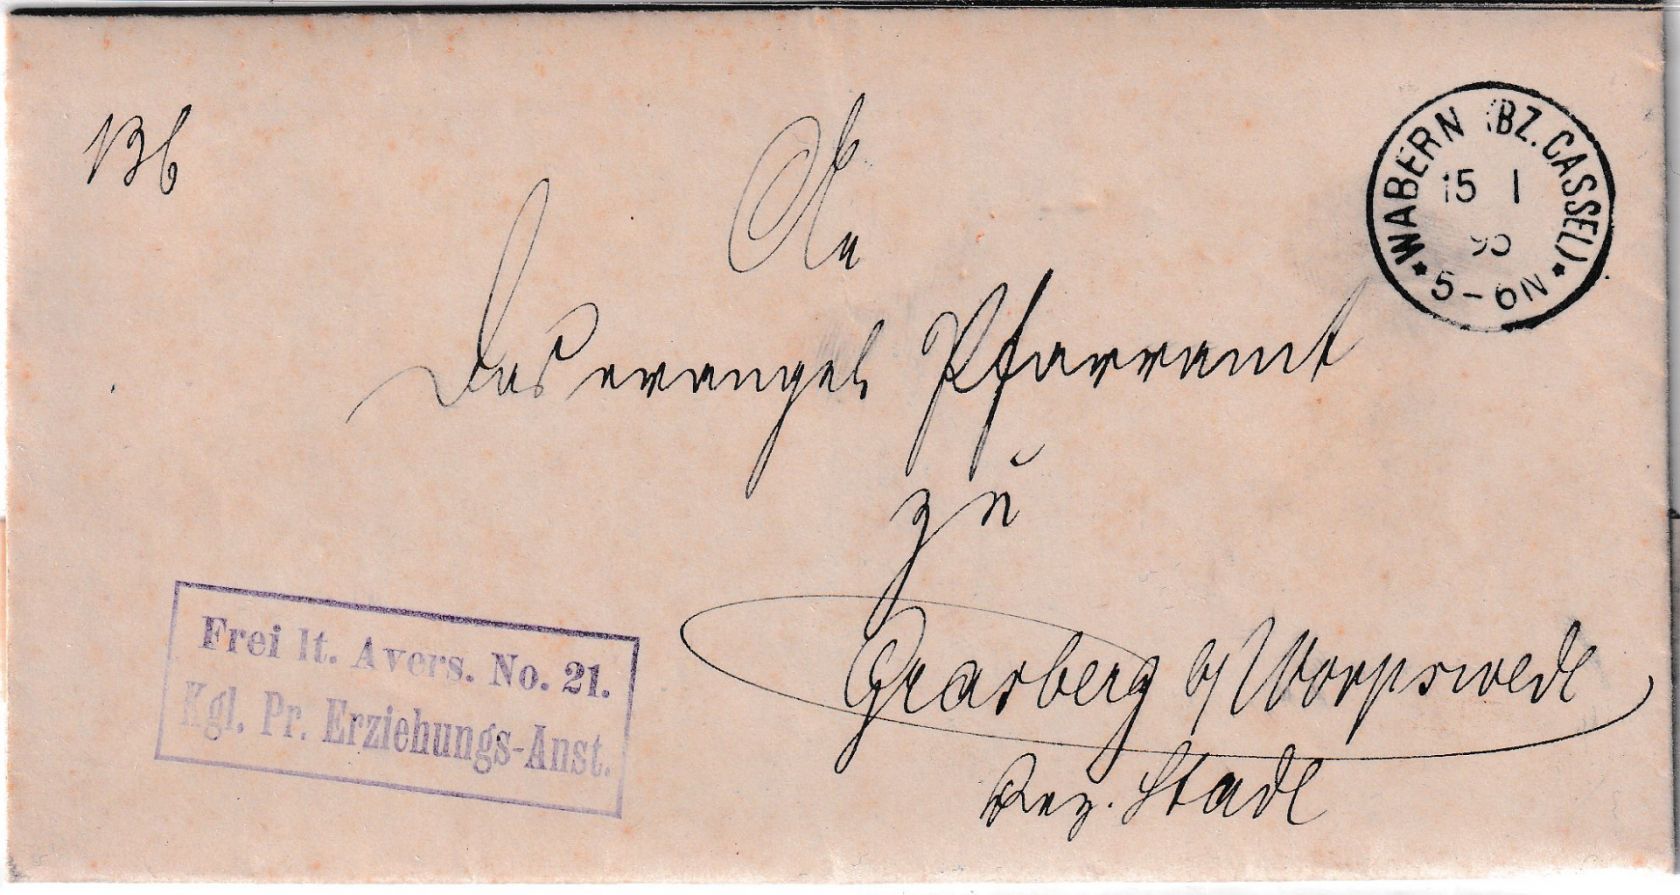 136
WABERN (BZ. CASSEL)
15 1
95
5-6N
An
das evangel. Pfarramt
zu
Grasberg b/Worpswede
Bez. Stade
Frei lt. Avers. No. 21.
Kgl. Pr. Erziehungs-Anst.